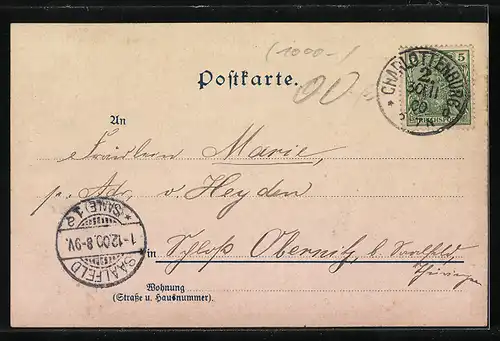 (1000-)
Postkarte.
5
CHARLOTTENBURG
2.
30.11
00
An
Fräulein Marie,
p. Adr. v. Heyden
in Schloß Obernitz, b. Saalfeld
Thüringen
SAALFELD
1-12.00.8-9V.
* (SAALE) 1 a
Wohnung
(Straße u. Hausnummer).